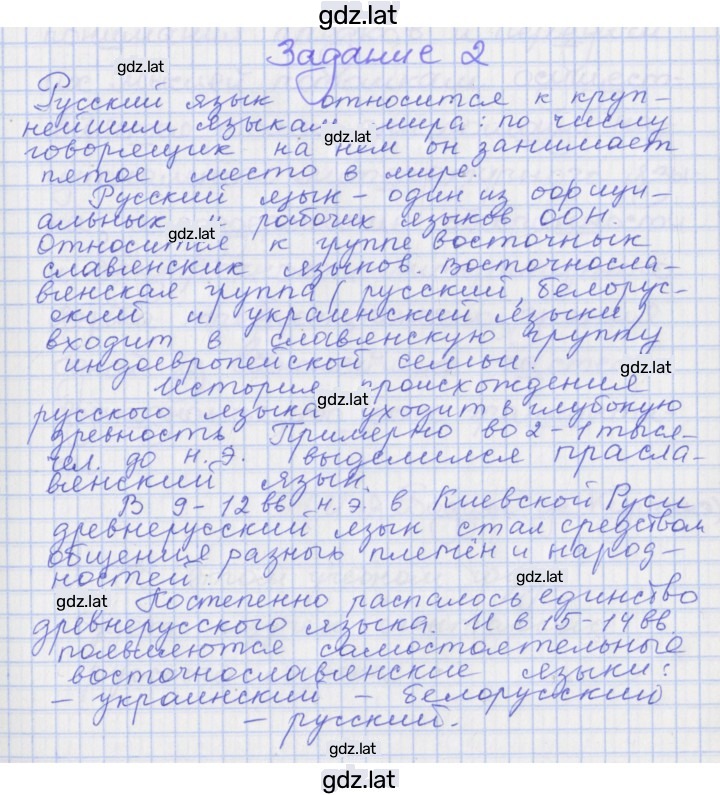 gdz.lat
Задание 2
gdz.lat
Русский язык относится к круп-
нейшим языкам мира: по числу
gdz.lat
говорящих на нём он занимает
пятое место в мире.
Русский язык – один из офици-
альных и рабочих языков ООН.
gdz.lat
Относится к группе восточных
славянских языков. Восточносла-
вянская группа (русский, белорус-
ский и украинский языки)
входит в славянскую группу
индоевропейской семьи.
gdz.lat
История происхождения
gdz.lat
русского языка уходит в глубокую
древность. Примерно во 2-1 тыся-
чел. до н.э. выделился прасла-
вянский язык.
В 9-12 вв н.э. в Киевской Руси
древнерусский язык стал средством
общения разных племён и народ-
ностей.
gdz.lat
gdz.lat
Постепенно распалось единство
древнерусского языка. И в 15-14 вв
появляются самостоятельные
восточнославянские языки:
– украинский – белорусский
– русский.
gdz.lat
gdz.lat